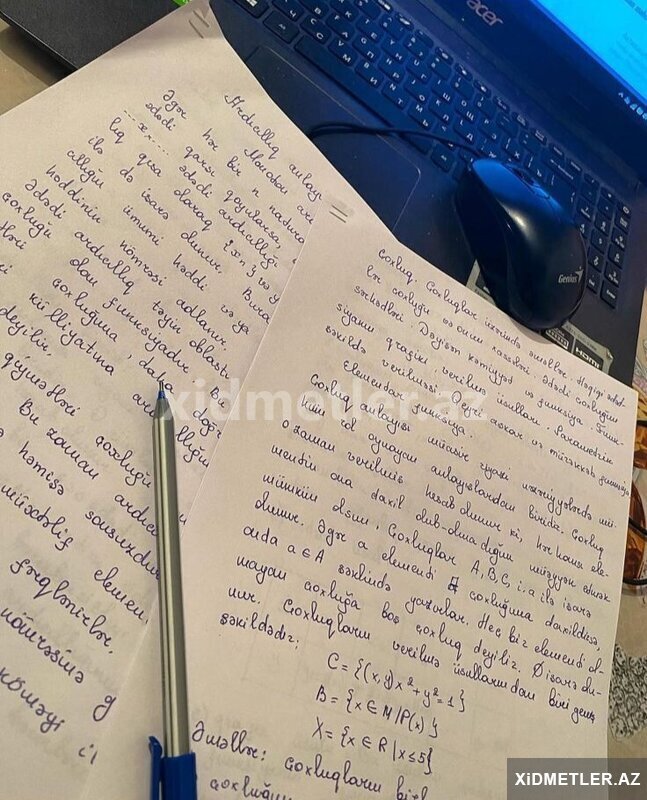 Ardıcıllıq anlayı
Əgər hər bir n natural
ədədi qarşı qoyularsa,
x ədədi ardıcıllığı
lıq qısa olaraq {xn} və y
ilə də işarə olunur. Bura
həddinin nömrəsi adlanır.
Ədədi ardıcıllıq təyin oblastı
çoxluğu olan funksiyadır. B
çoxluğuna, daha doğr
külliyyatına ardıcıllığın
deyilir.
qiymətləri çoxluğu
Bu zaman ardıcı
həmişə sonsuzdur
müxtəlif elemen
fərqlənirlər,
nömrəsinə g
köməyi il
Çoxluq. Çoxluqlar üzərində əməllər. Həqiqi ədəd-
lər çoxluğu və onun xassələri. Ədədi çoxluğun
sərhədləri. Dəyişən kəmiyyət və funksiya. Funk-
siyanın qrafiki, verilmə üsulları. Parametrik
şəkildə verilməsi. Qeyri aşkar və mürəkkəb funksiya
Elementar funksiya.
Çoxluq anlayışı müasir riyazi nəzəriyyələrdə mü-
hüm rol oynayan anlayışlardan biridir. Çoxluq
o zaman verilmiş hesab olunur ki, hər hansı ele-
mentin ona daxil olub-olmadığını müəyyən etmək
mümkün olsun. Çoxluqlar A, B, C, i.a ilə işarə
olunur. Əgər a elementi A çoxluğuna daxildirsə,
onda a ∈ A şəklində yazırlar. Heç bir elementi ol-
mayan çoxluğa boş çoxluq deyilir. Ø işarə olu-
nur. Çoxluqların verilmə üsullarından biri geniş
şəkildədir:
C = {(x, y) x² + y² = 1}
B = {x ∈ M / P(x)}
X = {x ∈ R | x ≤ 5}
Əməllər: Çoxluqların
çoxluğun
acer
Genius
HDMI
xidmetler.az
XiDMETLER.AZ